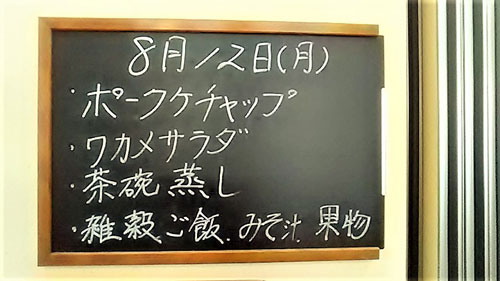 8月12日(月)
・ポークケチャップ
・ワカメサラダ
・茶碗蒸し
・雑穀ご飯、みそ汁、果物